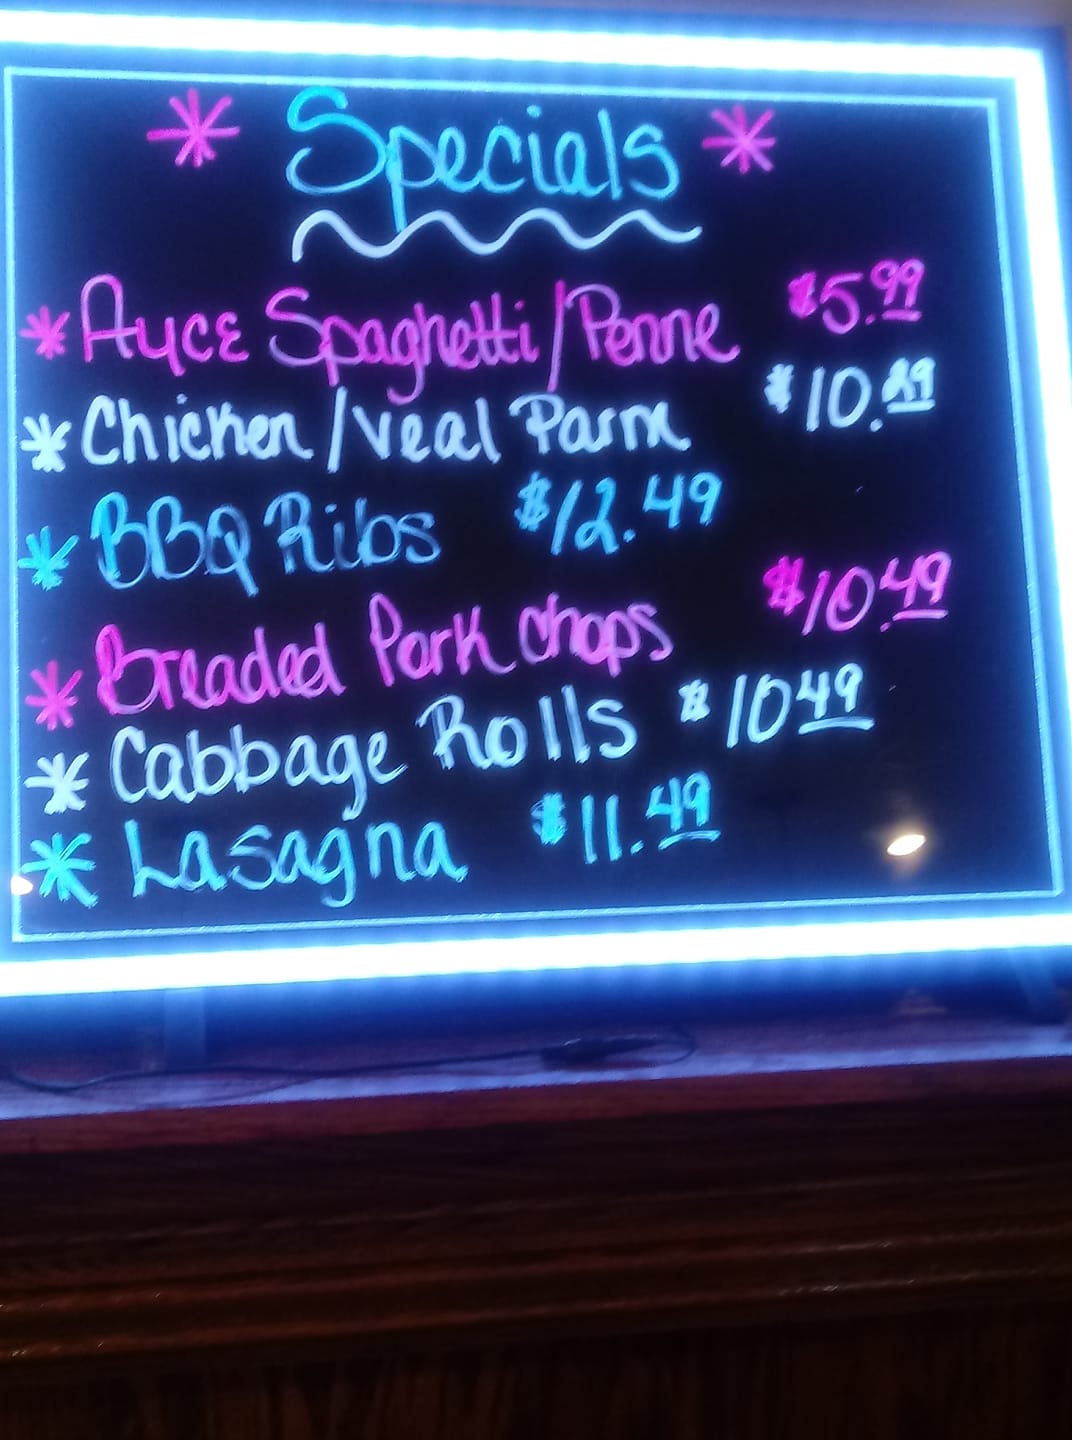 * Specials *
* Ayce Spaghetti/Penne $5.99
* Chicken/Veal Parm $10.
* BBQ Ribs $12.49
* Breaded Pork chops $10.49
* Cabbage Rolls $10 49
* Lasagna $11.49